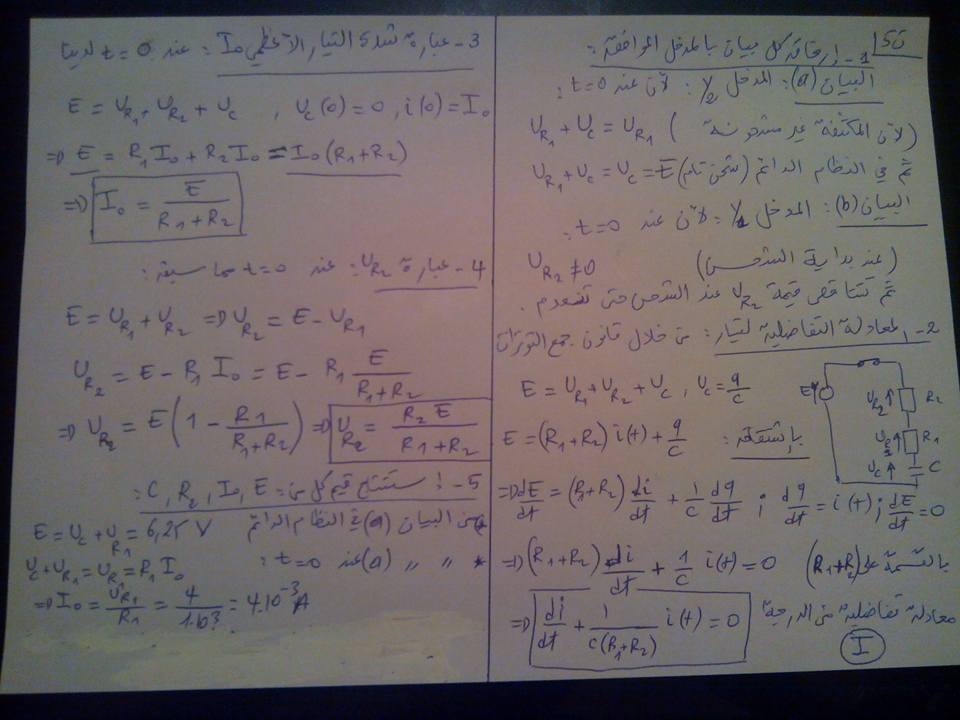 ت5
1- إرفاق كل بيان بالمدخل الموافق:
البيان (a): المدخل Y2: لأن عند t=0:
U_R1 + U_C = U_R1 (لأن المكثفة غير مشحونة)
ثم في النظام الدائم (شحن تام) U_R1 + U_C = U_C = E
البيان (b): المدخل Y1: لأن عند t=0:
U_R2 ≠ 0 (عند بداية الشحن)
ثم تتناقص قيمة U_R2 عند الشحن حتى تنعدم.
2- المعادلة التفاضلية لتيار: من خلال قانون جمع التوترات
E = U_R1 + U_R2 + U_C , U_C = q/C
E = (R1+R2) i(t) + q/C باشتقاق:
⇒ dE/dt = (R1+R2) di/dt + 1/C dq/dt ; dq/dt = i(t) ; dE/dt = 0
⇒ (R1+R2) di/dt + 1/C i(t) = 0 بالقسمة على (R1+R2)
⇒ di/dt + 1/(C(R1+R2)) i(t) = 0 معادلة تفاضلية من الدرجة
I
E
U_R2 R2
R1
U_C C
3- عبارة شدة التيار الأعظمي I0: عند t=0 لدينا
E = U_R1 + U_R2 + U_C , U_C(0)=0 , i(0)=I0
⇒ E = R1 I0 + R2 I0 = I0 (R1+R2)
⇒ I0 = E/(R1+R2)
4- عبارة U_R2: عند t=0 مما سبق:
E = U_R1 + U_R2 ⇒ U_R2 = E - U_R1
U_R2 = E - R1 I0 = E - R1 E/(R1+R2)
⇒ U_R2 = E(1 - R1/(R1+R2)) ⇒ U_R2 = R2 E/(R1+R2)
5- استنتاج قيم كل من: C, R2, I0, E:
من البيان (a) في النظام الدائم E = U_C + U_R1 = 6,25 V
* " " (a) عند t=0: U_C + U_R1 = U_R1 = R1 I0
⇒ I0 = U_R1/R1 = 4/1.10^3 = 4.10^-3 A